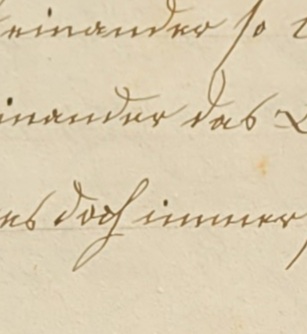 einander so
einander das
es doch immer